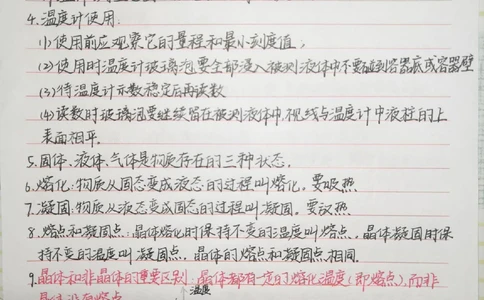 4.温度计使用.
(1)使用前应观察它的量程和最小刻度值;
(2)使用时温度计玻璃泡要全部浸入被测液体中不要碰到容器底或容器壁
(3)待温度计示数稳定后再读数
(4)读数时玻璃泡要继续留在被测液体中,视线与温度计中液柱的上
表面相平.
5.固体、液体、气体是物质存在的三种状态.
6.熔化:物质从固态变成液态的过程叫熔化。要吸热
7.凝固:物质从液态变成固态的过程叫凝固。要放热.
8.熔点和凝固点:晶体熔化时保持不变的温度叫熔点,晶体凝固时保
持不变的温度叫凝固点,晶体的熔点和凝固点相同.
9.晶体和非晶体的重要区别:晶体都有一定的熔化温度(即熔点),而非
晶体没有熔点.
温度